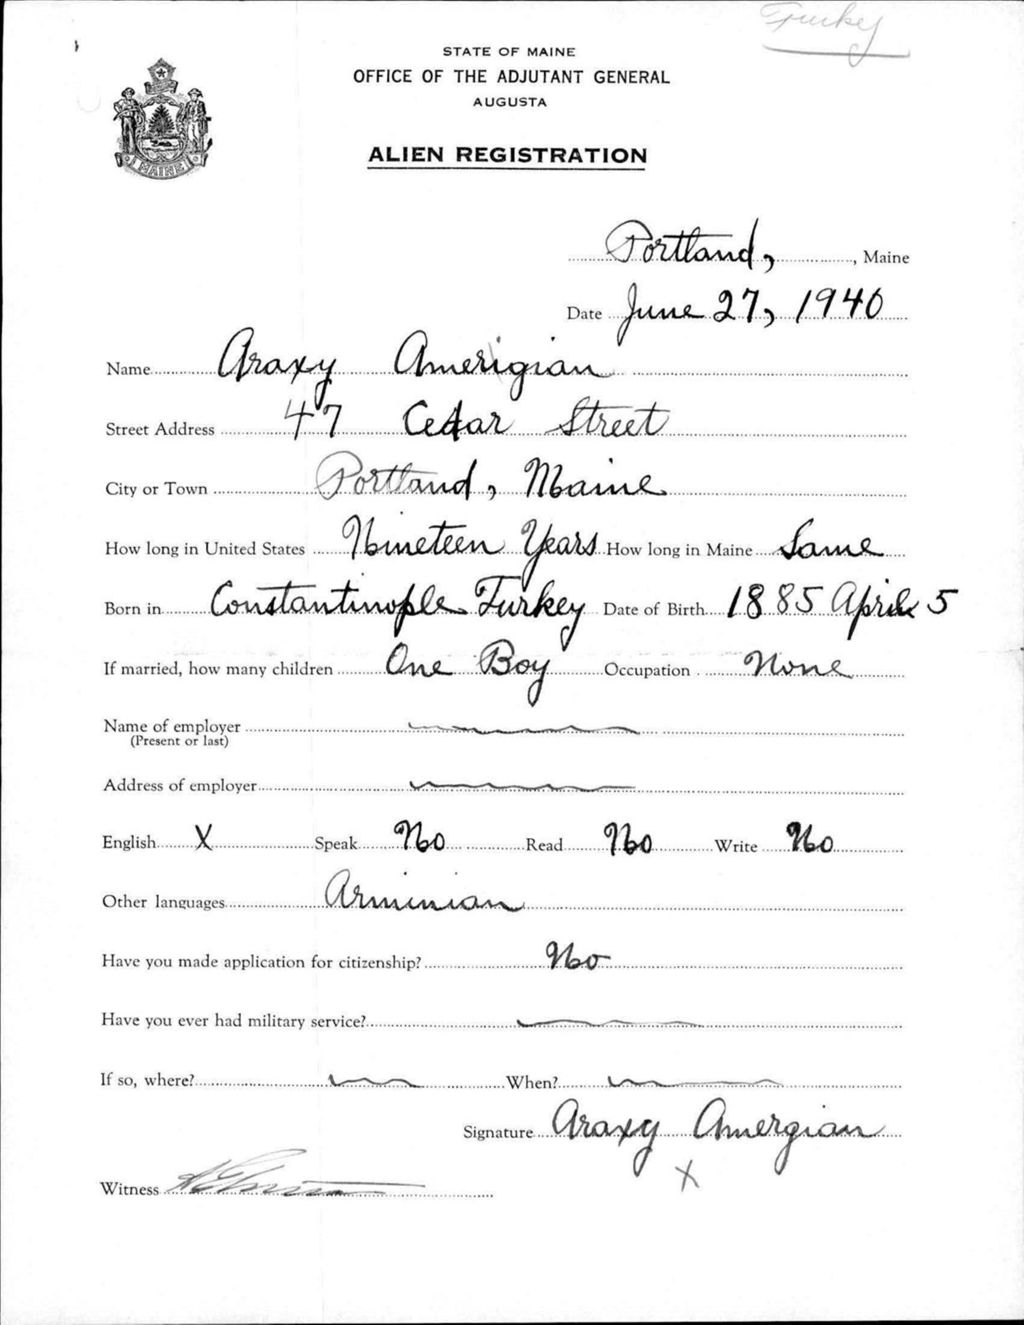 Turkey
STATE OF MAINE
OFFICE OF THE ADJUTANT GENERAL
AUGUSTA
ALIEN REGISTRATION
MAINE
Portland, , Maine
Date June 27, 1940
Name Araxy Amerigian
Street Address 47 Cedar Street
City or Town Portland, Maine
How long in United States Nineteen Years How long in Maine Same
Born in Constantinople Turkey Date of Birth 1885 April 5
If married, how many children One Boy Occupation None
Name of employer
(Present or last)
Address of employer
English X Speak No Read No Write No
Other languages Arminian
Have you made application for citizenship? No
Have you ever had military service?
If so, where? When?
Signature Araxy Amergian
X
Witness